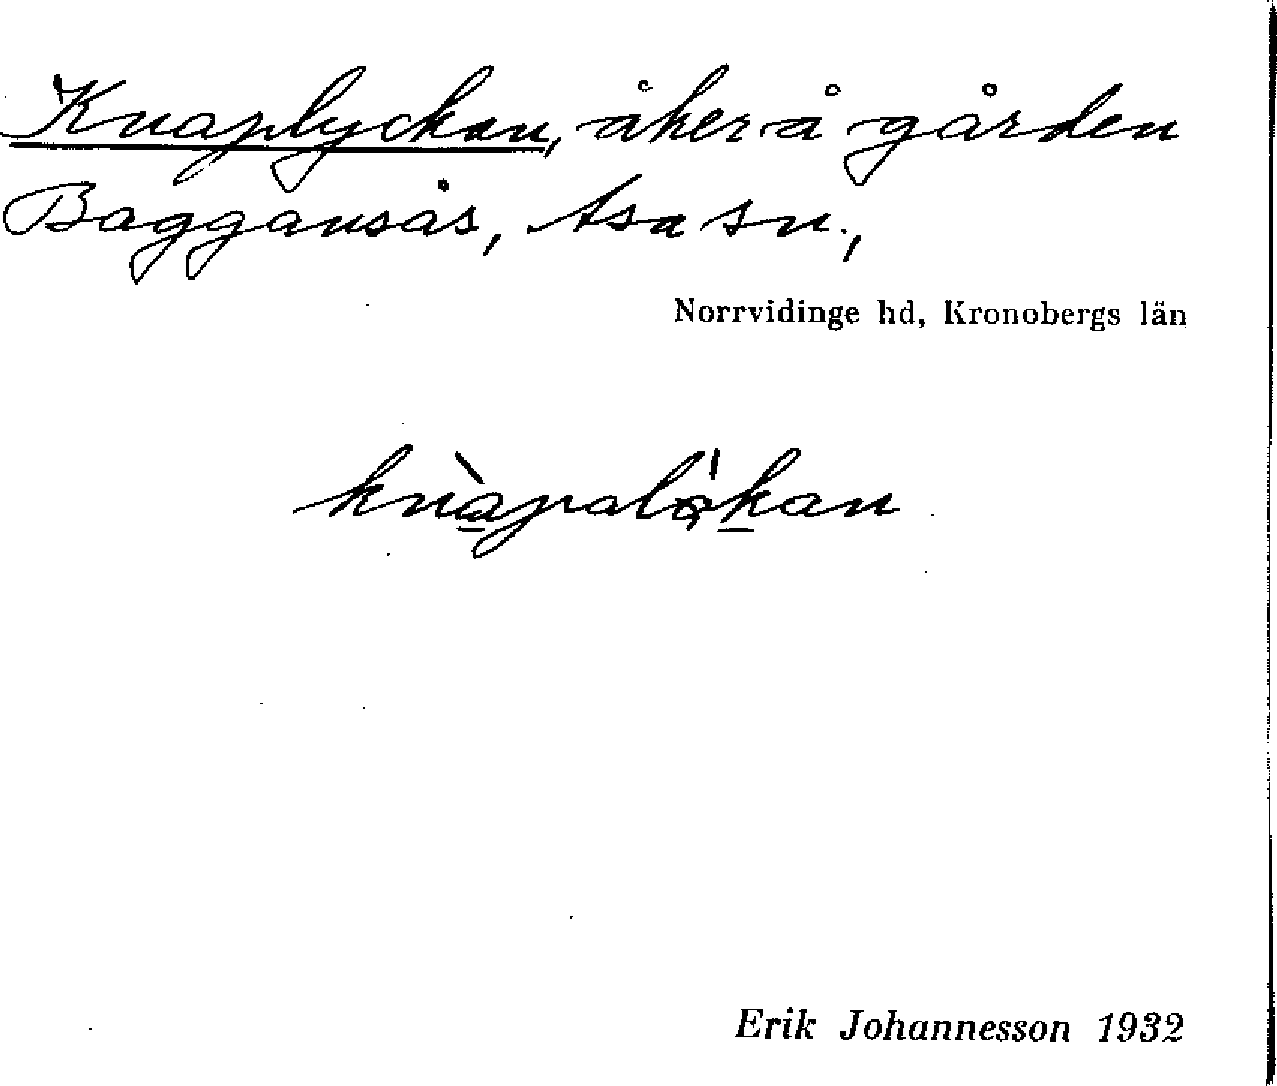 Knaplyckan, åker å gården
Baggansås, Asa sn.,
Norrvidinge hd, Kronobergs län
knàpalǫ̈́kan
Erik Johannesson 1932